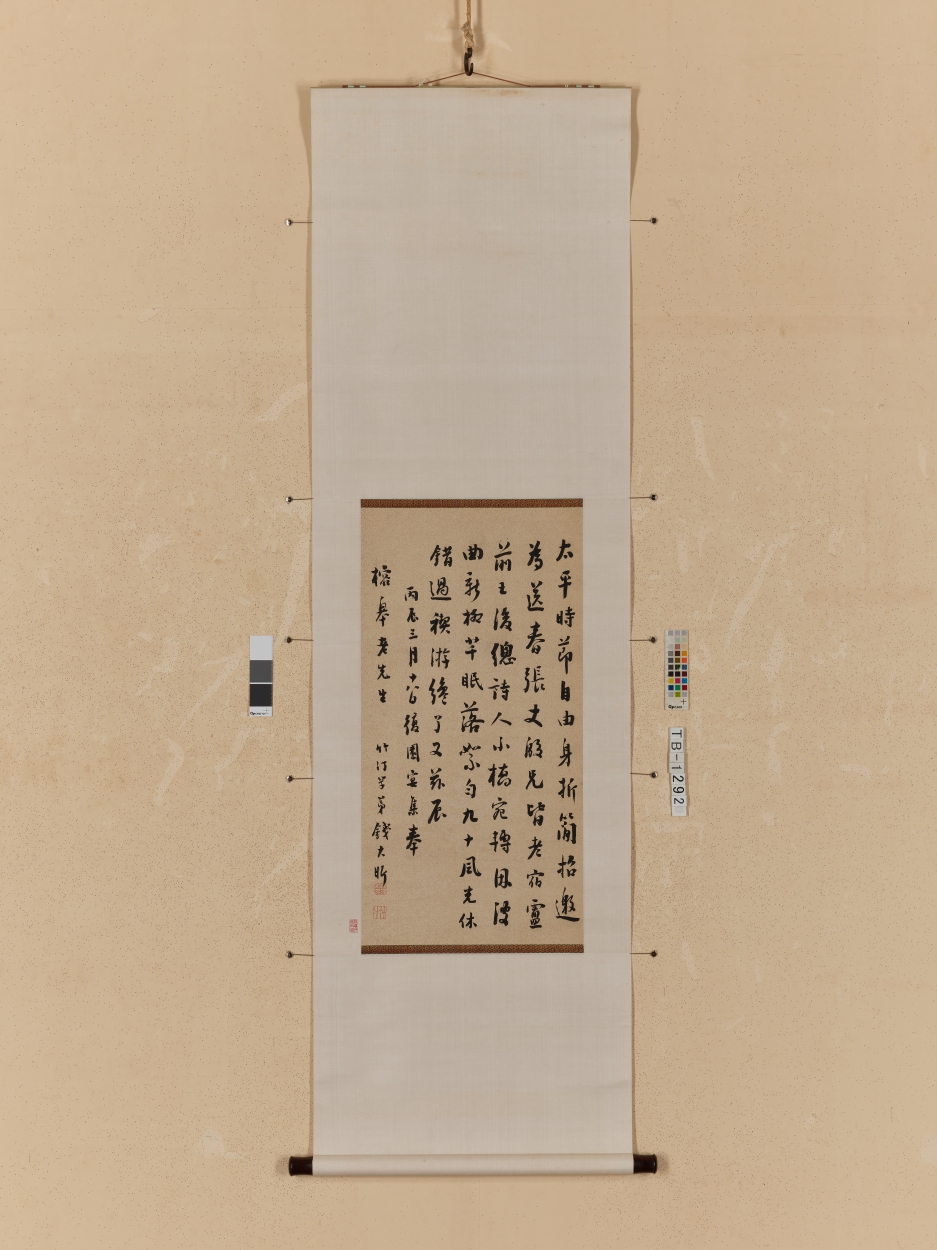 太平時節自由身折簡招邀
為送春張丈殷兄皆老宿盧
前王後總詩人小橋宛轉回波
曲新柳芊眠落絮勻九十風光休
錯過禊游纔了又茲辰
丙辰三月園宴集奉
榕皋老先生 竹汀学弟錢大昕
TB-1292